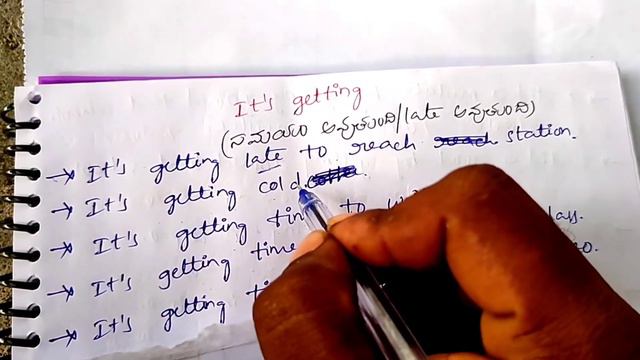 It's getting
(సమయం అవుతుంది/late అవుతుంది)
→ It's getting late to reach station.
→ It's getting cold.
→ It's getting to
→ It's getting time
→ It's getting